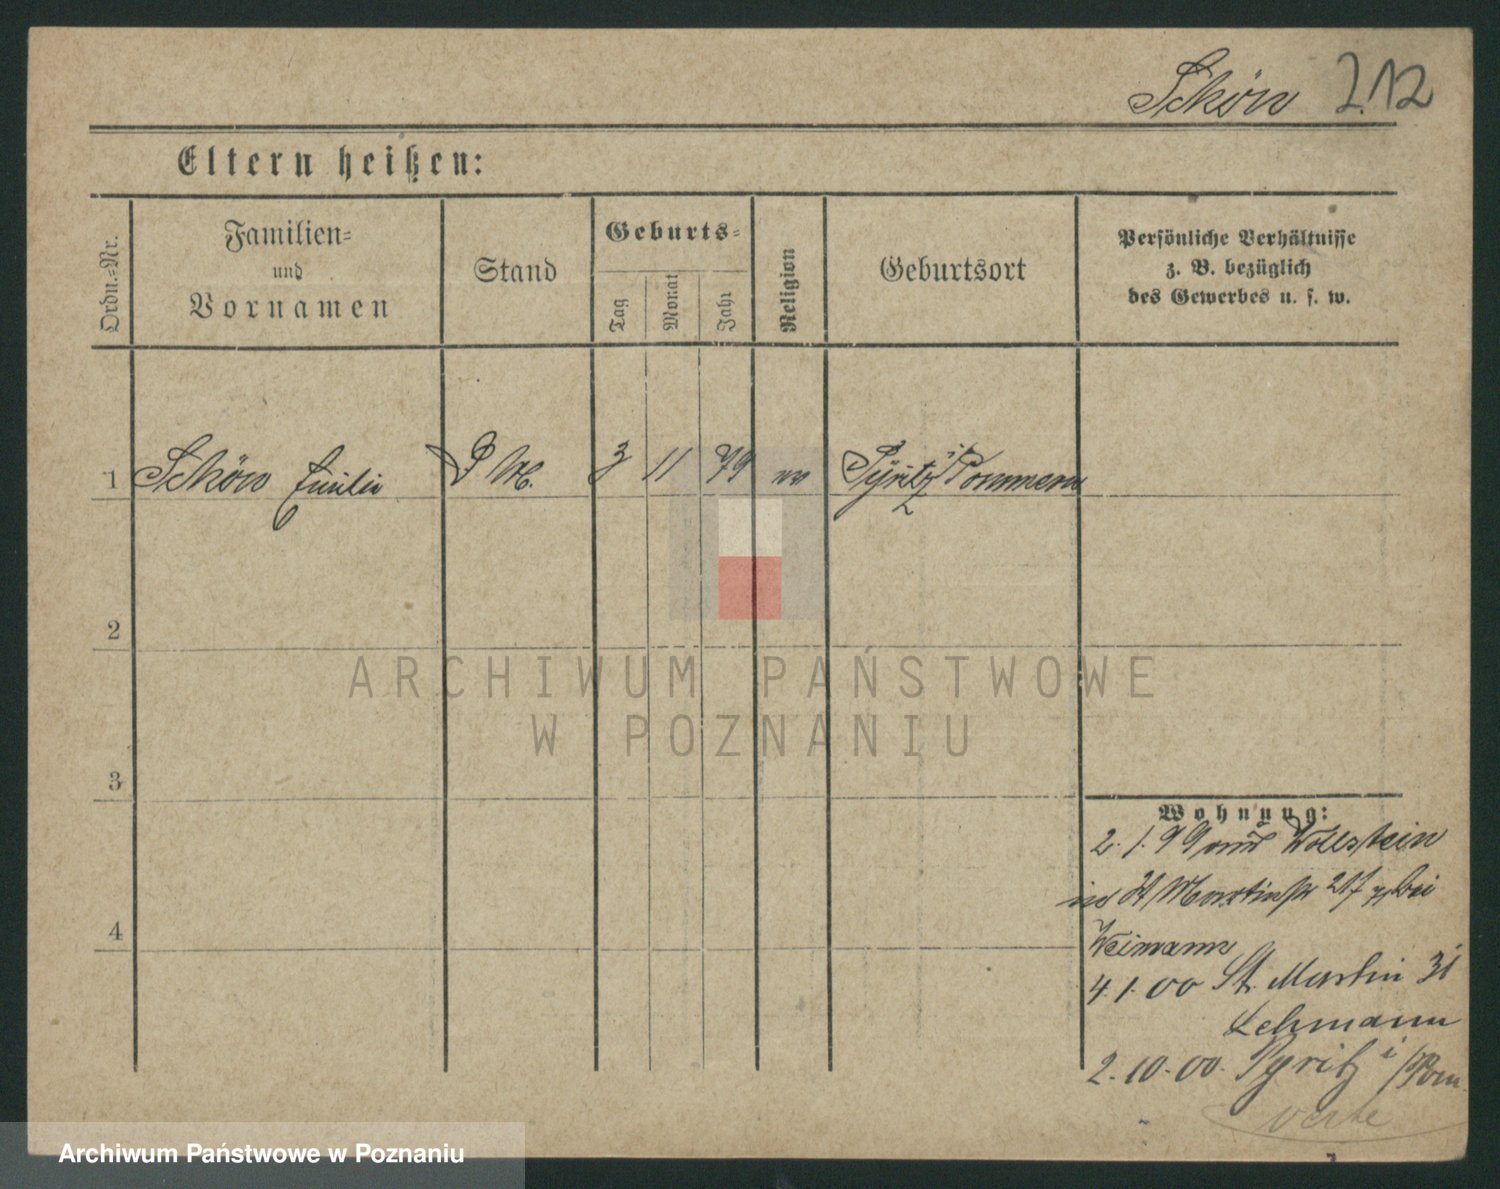 Schön 212
Eltern heißen:
Ordn.=Nr.
Familien=
und
Vornamen
Stand
Geburts=
Tag
Monat
Jahr
Religion
Geburtsort
Persönliche Verhältnisse
z. B. bezüglich
des Gewerbes u. s. w.
1 Schön Emilie 3 11 79 Pyritz i/Pommern
2
ARCHIWUM PAŃSTWOWE
W POZNANIU
3
Wohnung:
2. 1. 99 aus Wollstein
in St Martinstr bei
4
Weimann
4. 1. 00 St. Martin 31
Lehmann
2. 10. 00. Pyritz i/Pom
verte
Archiwum Państwowe w Poznaniu